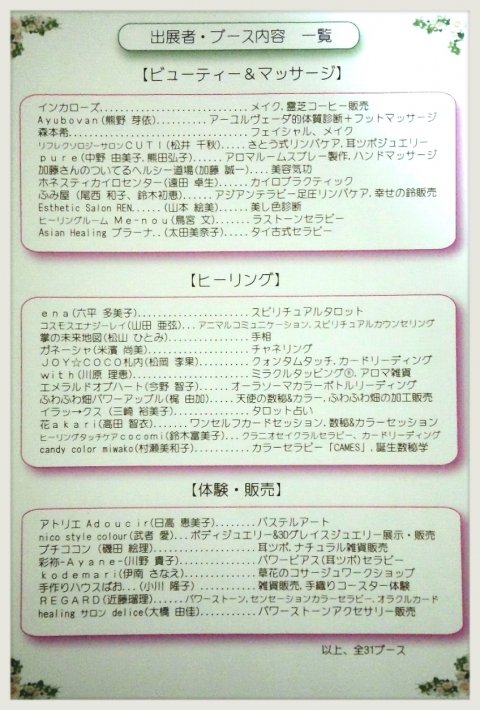 出展者・ブース内容　一覧
【ビューティー＆マッサージ】
インカローズ..........................メイク,霊芝コーヒー販売
Ayubovan(熊野 芽依)..........アーユルヴェーダ的体質診断＋フットマッサージ
森本希..........................フェイシャル、メイク
リフレクソロジーサロンＣＵＴＩ(松井 千秋).....さとう式リンパケア,耳ツボジュエリー
ｐｕｒｅ(中野 由美子,熊田弘子)......アロマルームスプレー製作,ハンドマッサージ
加藤さんのついてるヘルシー道場(加藤 誠一)....美容気功
ホネスティカイロセンター(遠田 卓生)......カイロプラクティック
ふみ屋（尾西 和子、鈴木初恵)......アジアンテラピー足圧リンパケア,幸せの鈴販売
Esthetic Salon REN......(山本 絵美)......美し色診断
ヒーリングルーム Ｍｅ-ｎｏｕ(鳥宮 文)........ラストーンセラピー
Asian Healing プラーナ..(太田美奈子).....タイ古式セラピー
【ヒーリング】
ｅｎａ(六平 多美子)...................スピリチュアルタロット
コスモスエナジーレイ(山田 亜弦)...アニマルコミュニケーション,スピリチュアルカウンセリング
掌の未来地図(松山 ひとみ)..............手相
ガネーシャ(米濱 尚美)...................チャネリング
ＪＯＹ☆ＣＯＣＯ札内(松岡 李果)..........クォンタムタッチ,カードリーディング
ｗｉｔｈ(川原 理恵)...................ミラクルタッピング®,アロマ雑貨
エメラルドオブハート(今野 智子)......オーラソーマカラーボトルリーディング
ふわふわ畑パワーアップル(梶 由加).....天使の数秘&カラー,ふわふわ畑の加工販売
イラッ→クス（三崎 裕美子)............タロット占い
花ａｋａｒｉ(高田 智衣).......ワンセルフカードセッション,数秘&カラーセッション
ヒーリングタッチケアｃｏｃｏｍｉ(鈴木富美子)...クラニオセイクラルセラピー、カードリーディング
candy color miwako(村瀬美和子)..........カラーセラピー「CAMES」,誕生数秘学
【体験・販売】
アトリエ Ａｄｏｕｃｉｒ(日高 恵美子)........パステルアート
nico style colour(武者 愛)...ボディジュエリー&3Dグレイスジュエリー展示・販売
プチココン（磯田 絵理)................耳ツボ,ナチュラル雑貨販売
彩祢-Ａｙａｎｅ-(川野 貴子)............パワーピアス(耳ツボ)セラピー
ｋｏｄｅｍａｒｉ(伊南 さなえ)............草花のコサージュワークショップ
手作りハウスぱお...(小川 隆子)..........雑貨販売,手織りコースター体験
ＲＥＧＡＲＤ(近藤瑠理).......パワーストーン,センセーションカラーセラピー,オラクルカード
healing サロン delice(大橋 由佳)..........パワーストーンアクセサリー販売
以上、全31ブース